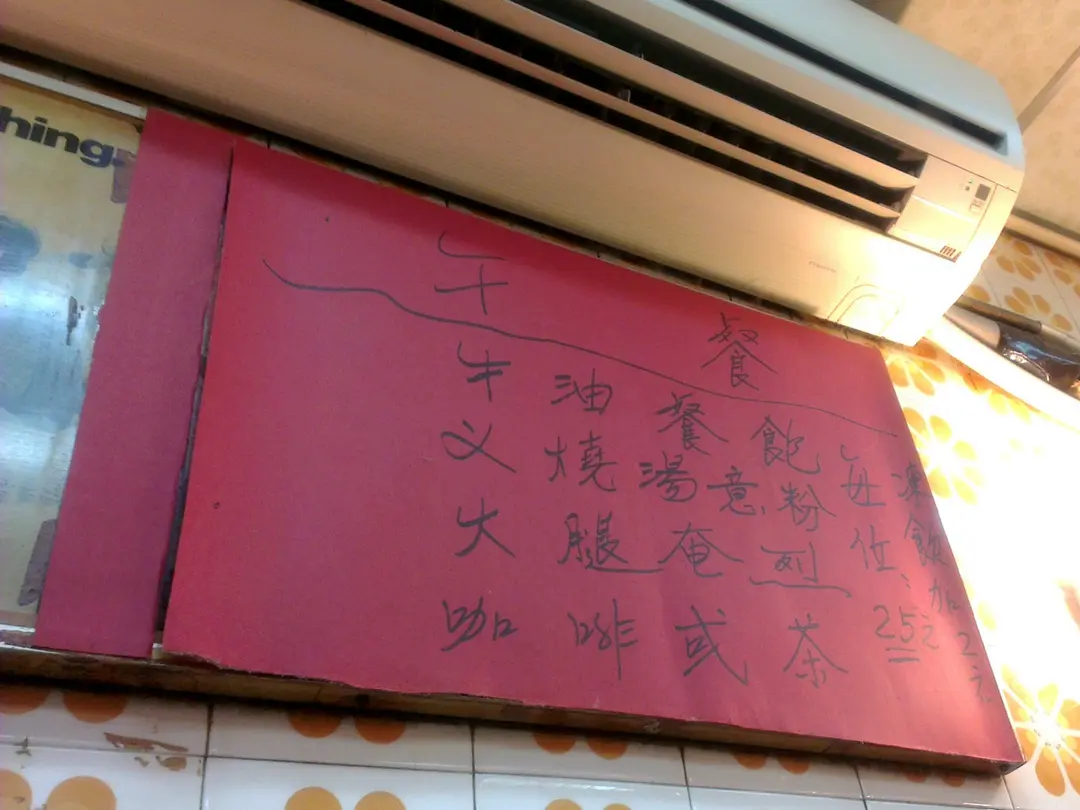 hings
午餐
牛油餐飽
叉燒湯意粉
火腿奄列
咖啡或茶
每位:25元
凍飲加2元